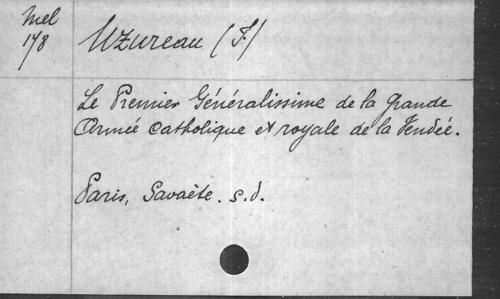 Mel
178
Uzureau (F.)
Le Premier Généralissime de la grande
Armée catholique et royale de la Vendée.
Paris, Savaète. s.d.